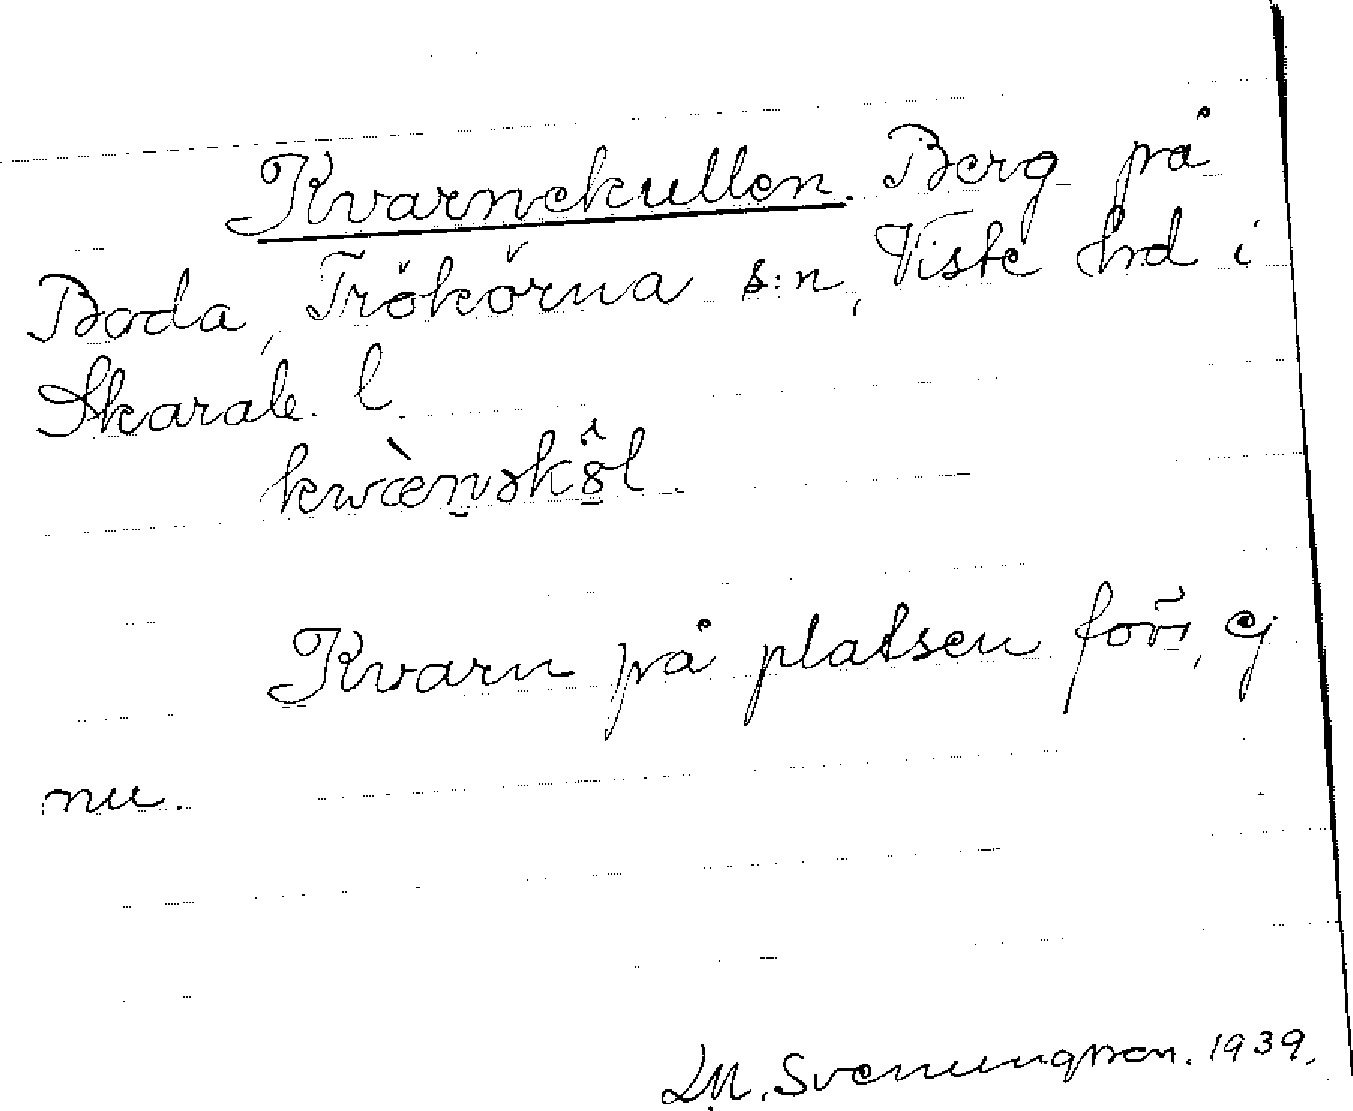 Kvarnekullen. Berg på
Boda, Trökörna s:n, Viste hrd i
Skarab. l.
kwæ̀nəkö̂l.
Kvarn på platsen förr, ej
nu.
LM. Svenungsson. 1939.